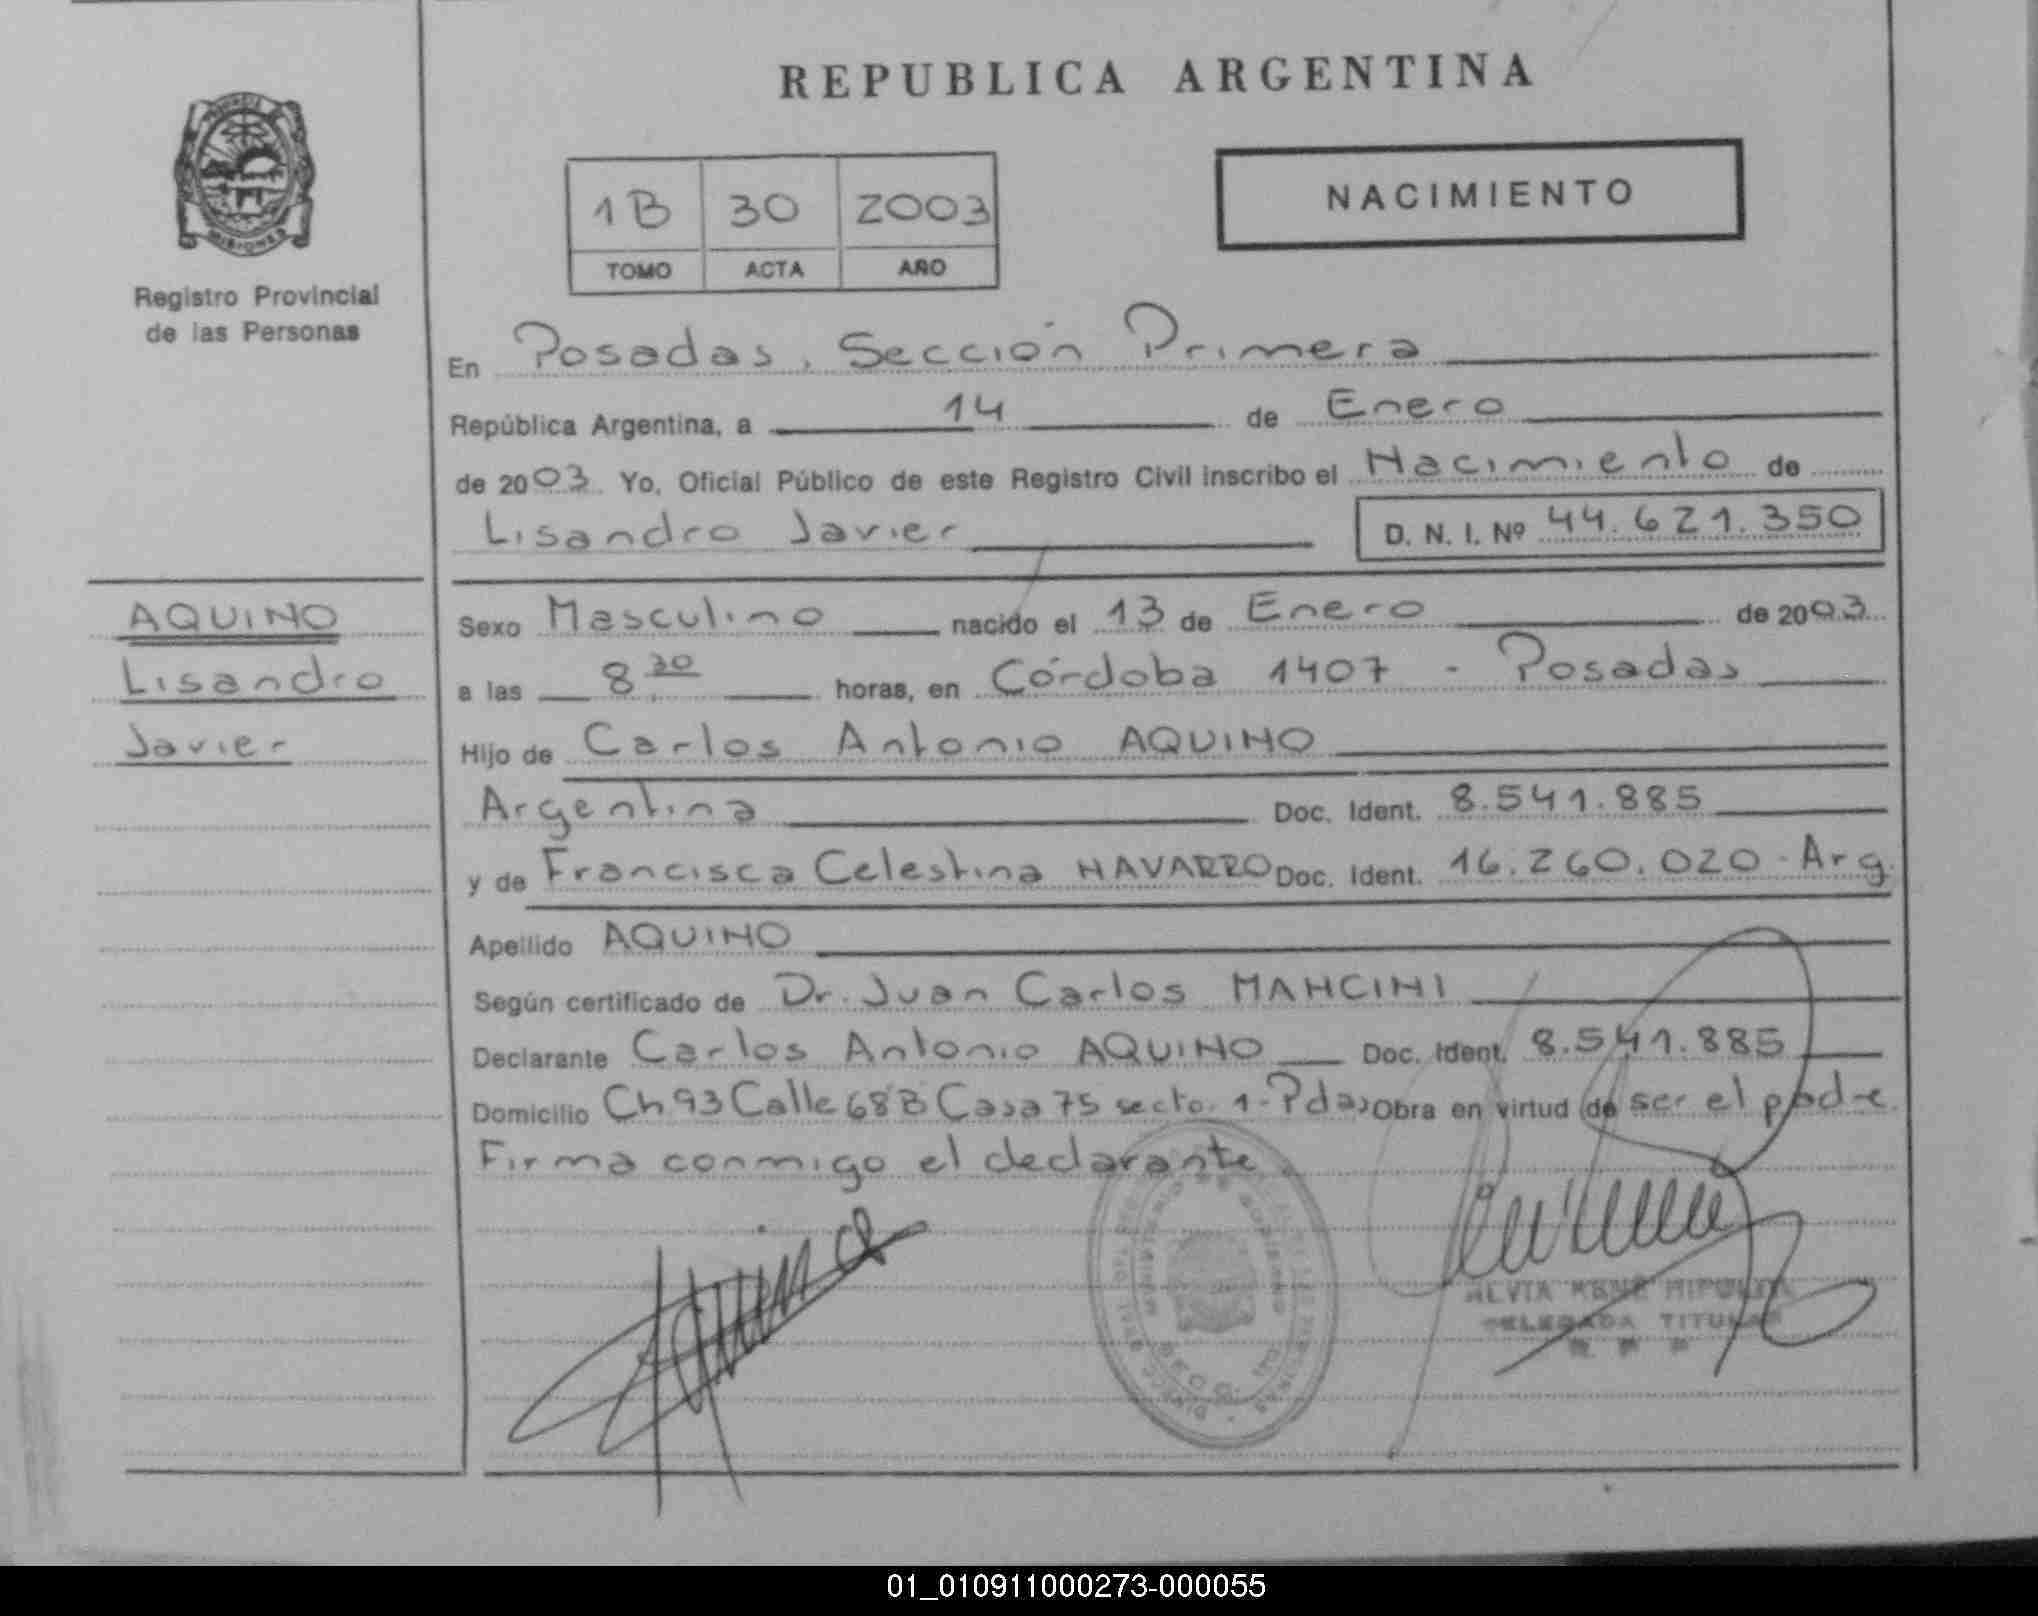 REPUBLICA ARGENTINA
MISIONES
Registro Provincial
de las Personas
1B 30 2003
TOMO ACTA AÑO
NACIMIENTO
En Posadas, Sección Primera
República Argentina, a 14 de Enero
de 2003 Yo, Oficial Público de este Registro Civil inscribo el Nacimiento de
Lisandro Javier D. N. I. Nº 44.621.350
AQUINO
Lisandro
Javier
Sexo Masculino nacido el 13 de Enero de 2003
a las 8 30 horas, en Córdoba 1407 - Posadas
Hijo de Carlos Antonio AQUINO
Argentina Doc. Ident. 8.541.885
y de Francisca Celestina NAVARRO Doc. Ident. 16.260.020 - Arg.
Apellido AQUINO
Según certificado de Dr. Juan Carlos MANCINI
Declarante Carlos Antonio AQUINO Doc. Ident. 8.541.885
Domicilio Ch 93 Calle 68B Casa 75 sector 1 - Pdas Obra en virtud de ser el padre.
Firma conmigo el declarante.
TITULAR
01_010911000273-000055